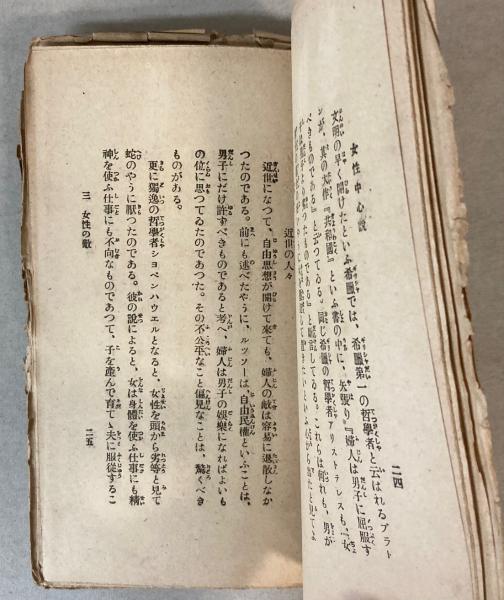 女性中心說
二四
文明の早く開けたといふ希臘では、希臘第一の哲學者と云はれるプラト
ンが、其の大作『共和國』といふ書の中に、矢張り『婦人は男子に屈服す
べきものである』と云つてゐる。同じ希臘の哲學者アリストテレスも、『女
は
と斷言してゐる。これらは何れも、男が
近世の人々
近世になつて、自由思想が開けて來ても、婦人の敵は容易に退散しなか
つたのである。前にも述べたやうに、ルッソーは、自由民權といふことは、
男子にだけ許すべきものであると考へ、婦人は男子の娛樂になればよいも
の位に思つてゐたのであつた。その不公平なこと偏見なことは、驚くべき
ものがある。
更に獨逸の哲學者ショペンハウエルとなると、女性を頭から劣等と見て
蛇のやうに厭つたのである。彼の說によると、女は身體を使ふ仕事にも精
神を使ふ仕事にも不向なものであつて、子を產んで育て、夫に服從するこ
三 女性の敵
二五